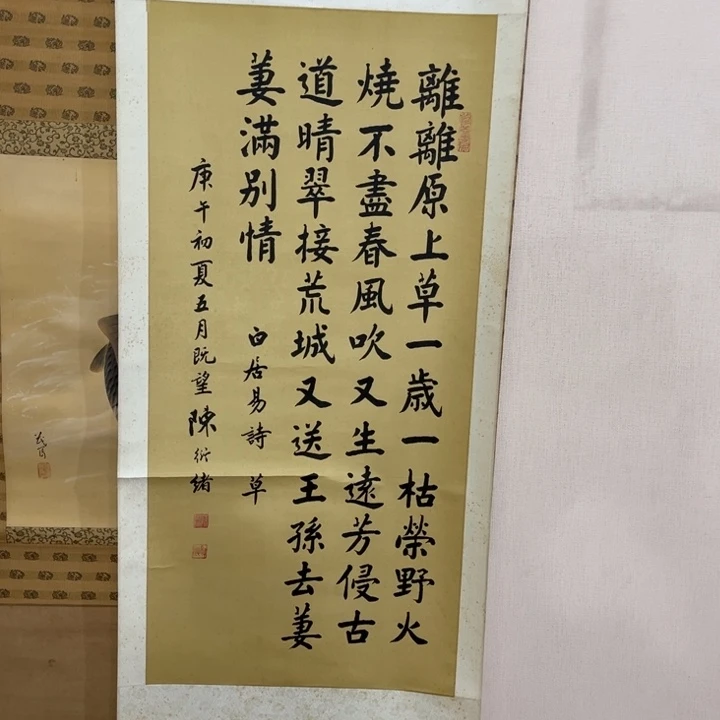 離離原上草一歳一枯榮野火
燒不盡春風吹又生遠芳侵古
道晴翠接荒城又送王孫去萋
萋滿別情
白居易詩 草
庚午初夏五月既望陳衍緒